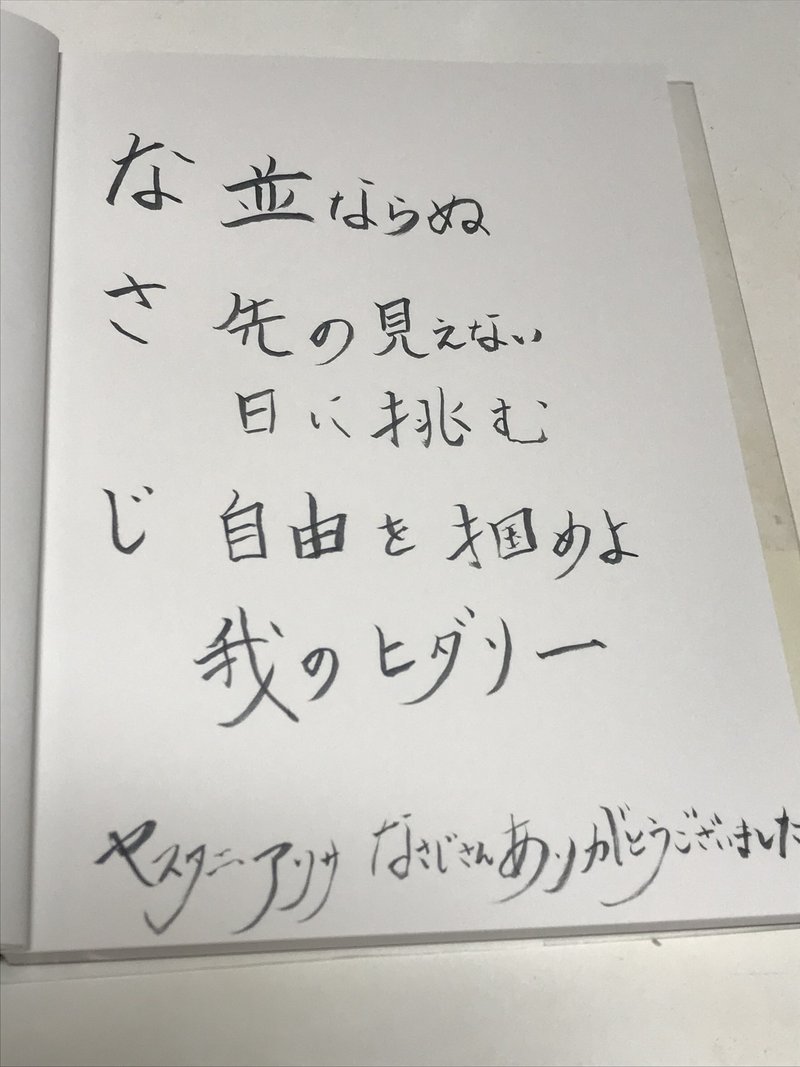 な 並ならぬ
さ 先の見えない
日に挑む
じ 自由を掴めよ
我のヒダリー
ヤスタニ アリサ なさじさんありがとうございました